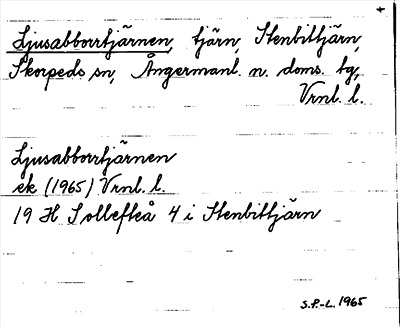 +
Ljusabborrtjärnen, tjärn, Stenbittjärn,
Skorpeds sn, Ångermanl. n. doms. bg,
Vrnl. l.
Ljusabborrtjärnen
ek (1965) Vrnl. l.
19 H Sollefteå 4 i Stenbittjärn
S.P.-L. 1965